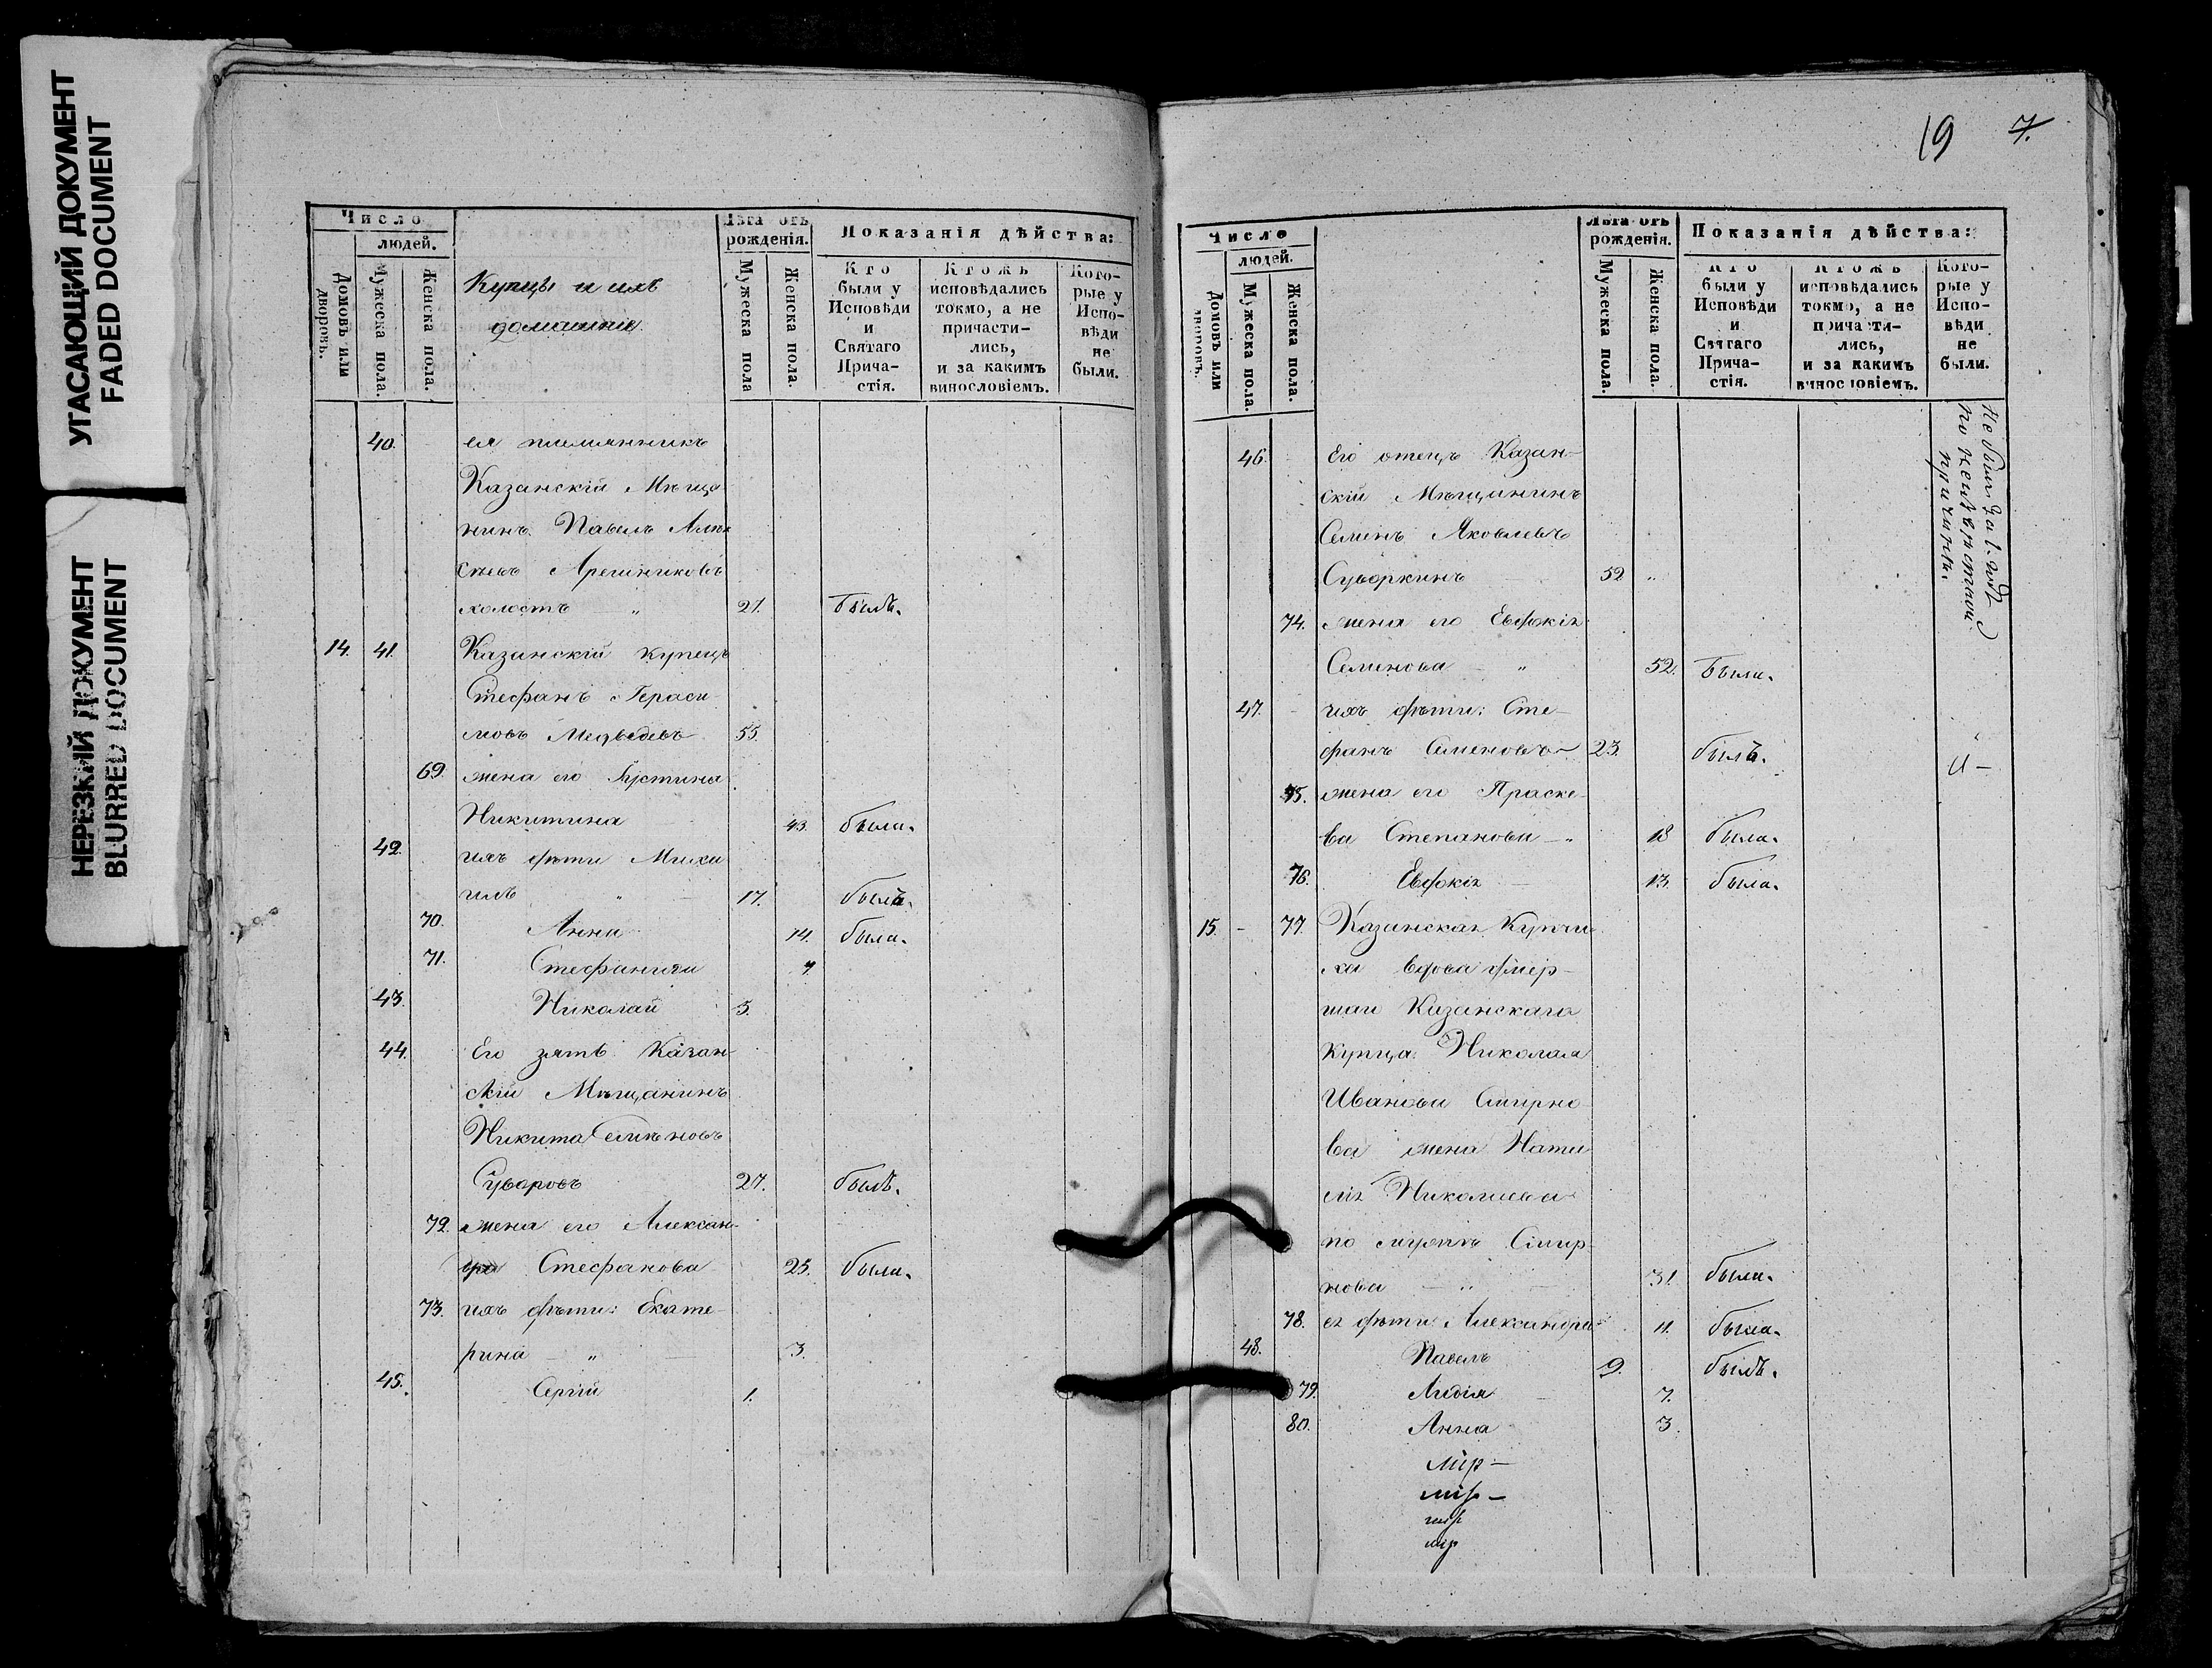 УГАСАЮЩИЙ ДОКУМЕНТ
FADED DOCUMENT
НЕРЕЗКИЙ ДОКУМЕНТ
BLURRED DOCUMENT
Число
людей.
Домовъ или дворовъ.
Мужеска пола.
Женска пола.
Купцы и ихъ
домашніе.
Лѣта отъ рожденія.
Мужеска пола
Женска пола.
Показанія дѣйства:
Кто были у Исповѣди и Святаго Прича-стія.
Ктожъ исповѣдались токмо, а не причасти-лись, и за какимъ винословіемъ.
Кото-рые у Испо-вѣди не были.
40. ея племянникъ
Казанскій Мѣща
нинъ Павелъ Алек
сѣевъ
холостъ " 27. былъ.
14. 41. Казанскій купецъ
Стефанъ Гераси
мовъ Медвѣдевъ 55.
69. жена его Іустина
Никитина 43. была.
42. ихъ дѣти Миха
илъ " 17. былъ.
70. Анна 14. была.
71. Стефанида 7.
43. Николай 5.
44. Его зять Казан
скій Мѣщанинъ
Никита Семеновъ
Суваровъ 27. былъ.
72. жена его Алексан
дра Стефанова 25. была.
73. ихъ дѣти: Екате-
рина — " — 3.
45. Сергій 1.
19 7.
Число
людей.
Домовъ или дворовъ.
Мужеска пола.
Женска пола.
Лѣта отъ рожденія.
Мужеска пола.
Женска пола.
Показанія дѣйства:
Кто были у Исповѣди и Святаго Прича-стія.
Ктожъ исповѣдались токмо, а не причасти-лись, и за какимъ винословіемъ.
Кото-рые у Испо-вѣди не были.
46. Его отецъ Казан-
скій Мѣщанинъ
Семенъ Яковлевъ
Суворкинъ 52 "
Не былъ за 1. годъ
по неизвѣстной
причинѣ.
74. жена его Евдокія
Семенова — " 52. Была.
47. ихъ дѣти: Сте-
фанъ Семеновъ — 23. былъ.
75. жена его Праске-
ва Степанова — " 18 была.
76. Евдокія — 13. была.
15. - 77. Казанская Купчи
ха вдова умер-
шаго Казанскаго
купца Николая
Иванова Смирно
ва жена Ната
лія Николаева
по мужѣ Смир-
нова — " — 31. была.
78. ея дѣти Александра 11. была.
48. Павелъ 9. былъ.
79. Лидія — 7.
80. Анна 3.